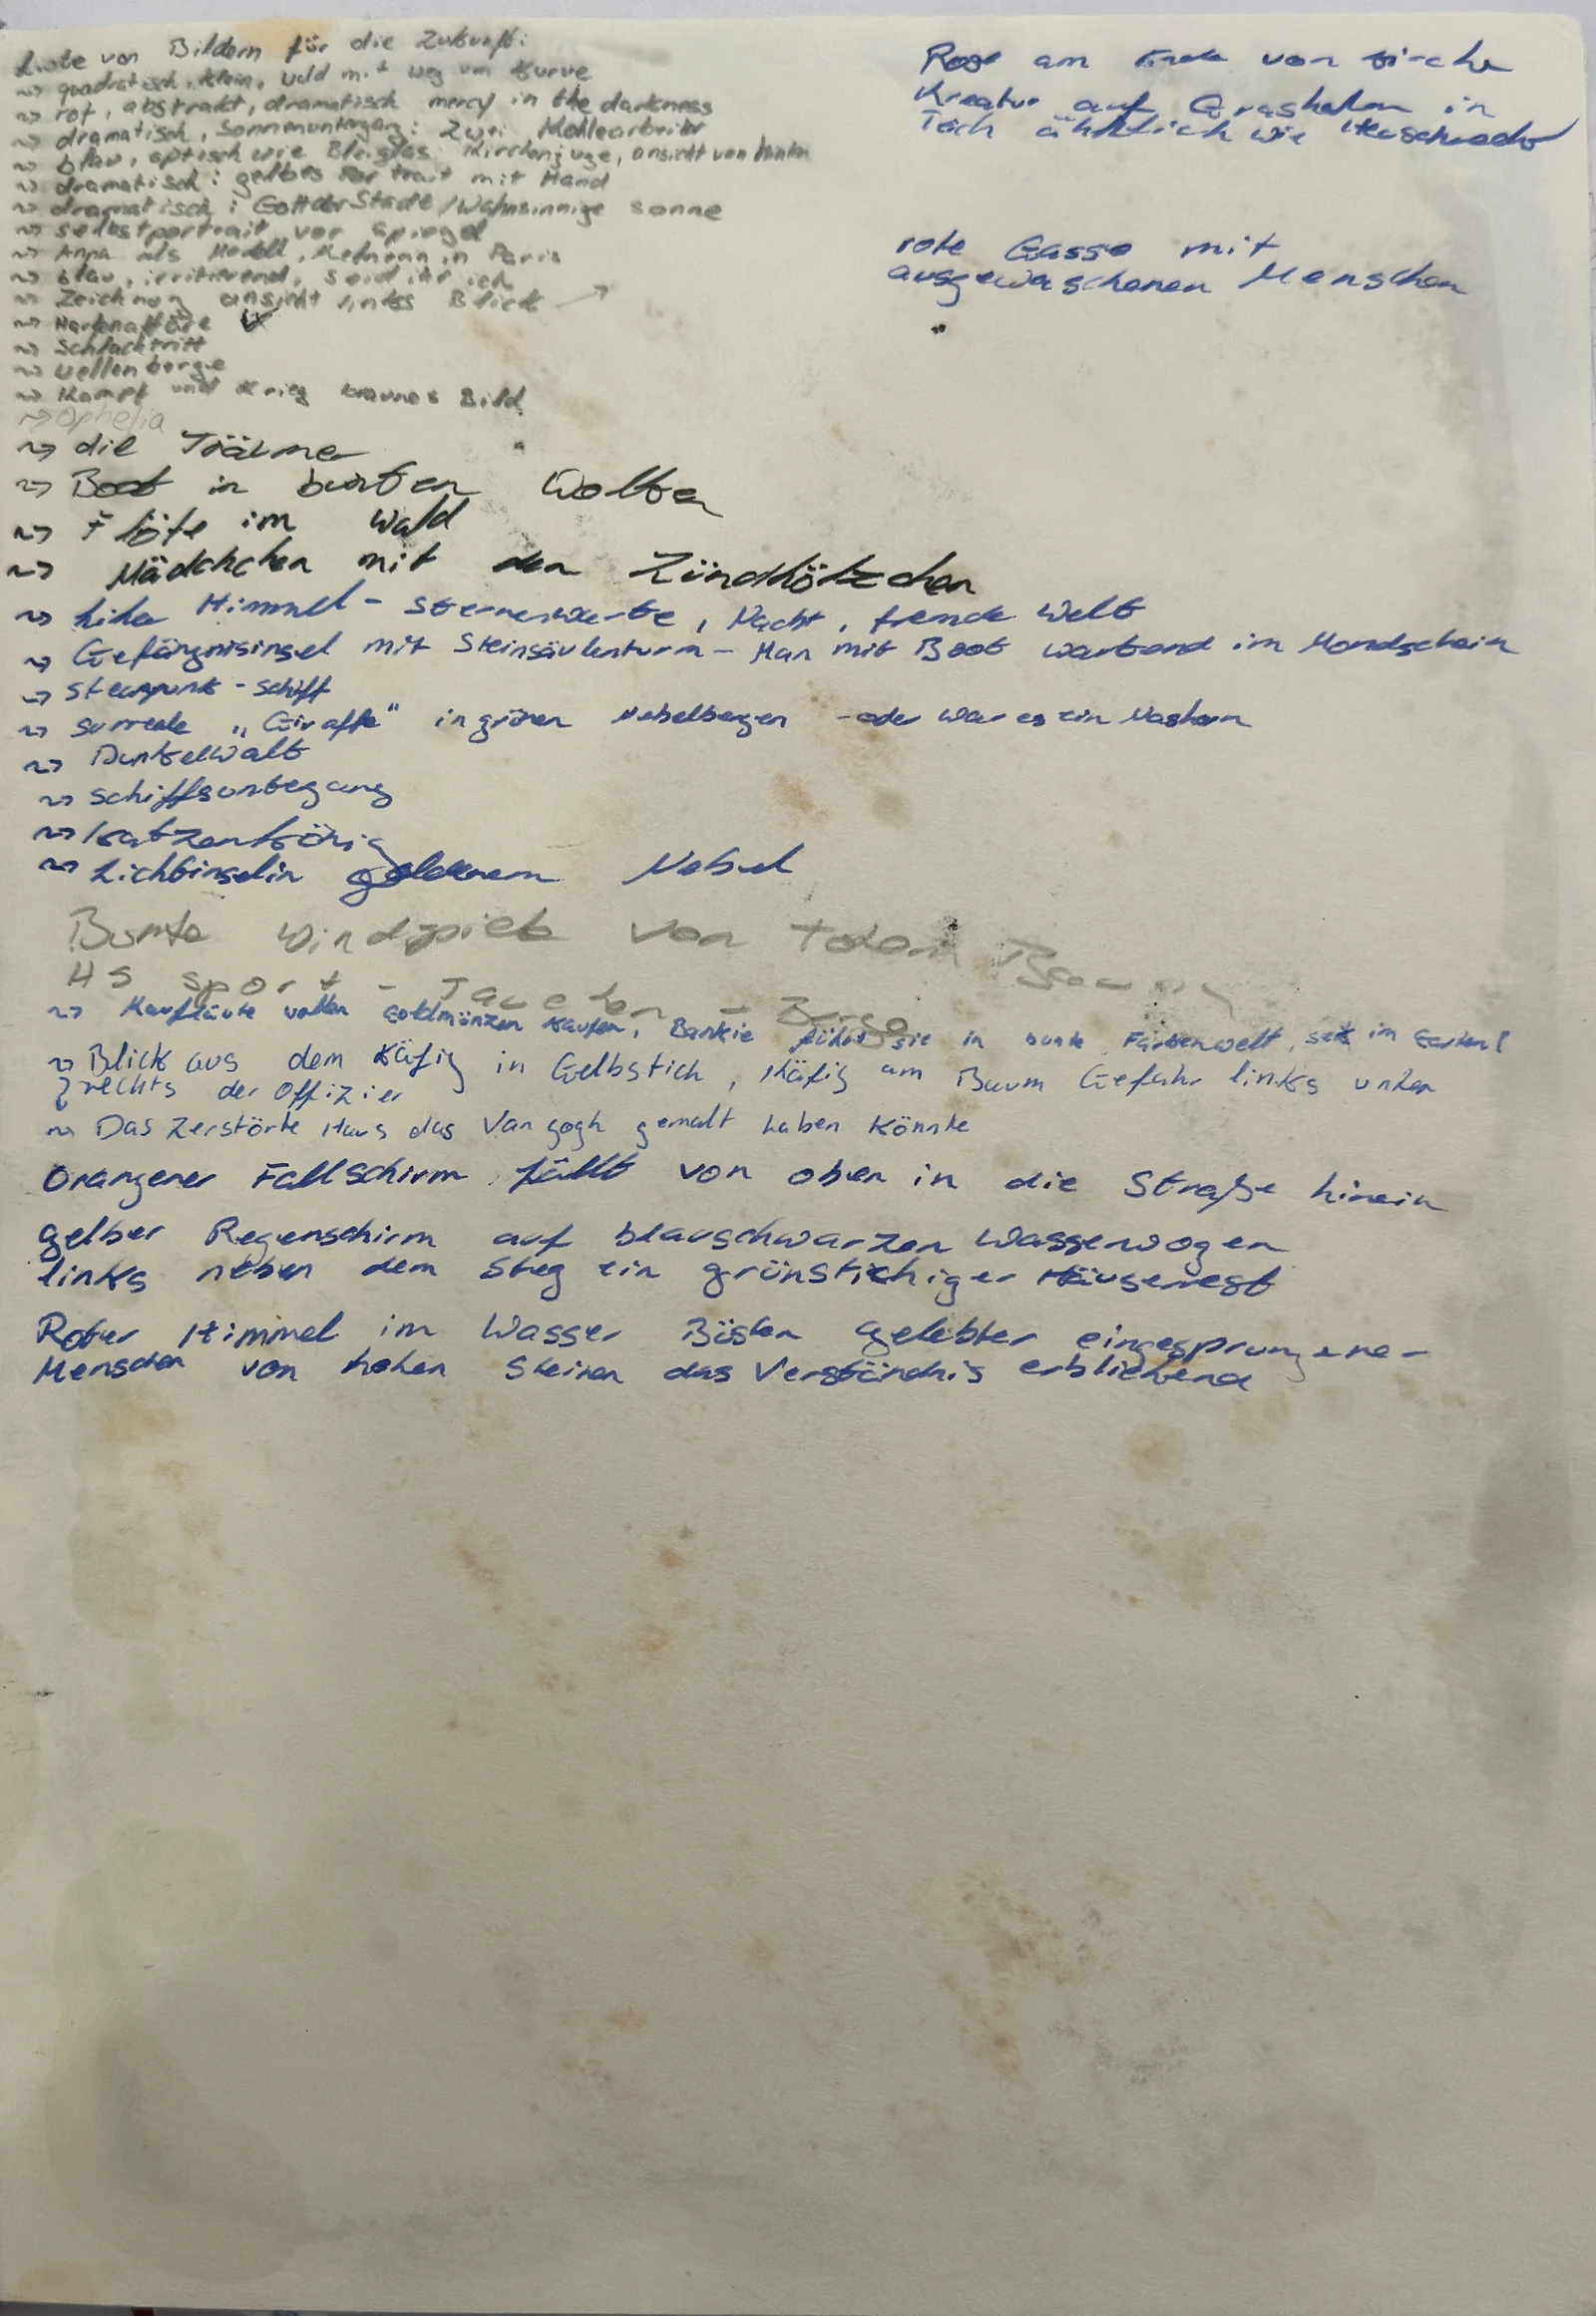 Liste von Bildern für die Zukunft:
~> quadratisch, klein, Wald mit Weg um Kurve
~> rot, abstrakt, dramatisch mercy in the darkness
~> dramatisch, Sonnenuntergang: Zwei Kohlearbeiter
~> blau, optisch wie Bleiglas: Kirchenjunge, ansicht von hinten
~> dramatisch: gelbes Portrait mit Hand
~> dramatisch: Gott der Stadt / Wahnsinnige sonne
~> selbstportrait vor Spiegel
~> Anna als Modell, in Paris
~> blau, irritierend, seid ihr ich
~> Zeichnung ansicht links Blick →
~>
~> Schlachtritt
~> Wellenberge
~> Kampf und Krieg braunes Bild
~> Ophelia
~> die Träumer
~> Boot in bunten Wolken
~> Flöte im Wald
~> Mädchchen mit den Zündhölzchen
~> Lila Himmel - Sternenwarte, Nacht, fremde Welt
~> Gefängnisinsel mit Steinsäulenturm - Man mit Boot wartend im Mondschein
~> Steampunk - Schiff
~> surreale „Giraffe“ in grünen Nebelbergen - oder war es ein Nashorn
~> Dunkelwalt
~> Schiffsuntegang
~> Katzenkönig
~> Lichtinsel in goldenem Nebel
Bunte Windspiele von totem
HS Sport - Tauchen - Berge
~> Kaufläute wollen Goldmünzen kaufen, führt sie in bunte Farbenwelt, im Garten!
~> Blick aus dem Käfig in Gelbstich, Käfig am Baum Gefahr links unten
rechts der Offizier
~> Das zerstörte Haus das Van gogh gemalt haben könnte
Orangener Fallschirm fällt von oben in die Straße hinein
gelber Regenschirm auf blauschwarzen Wasserwogen
links neben dem Steg ein grünstichiger Häuserrest
Roter Himmel im Wasser Büsten gelebter eingesprungene-
Menschen von hohen Steinen das Verständnis erblickende
Rose am Ende von Kirche
Kreatur auf Grashalm in
Teich ähnlich wie Heuschrecke
rote Gasse mit
ausgewaschenen Menschen